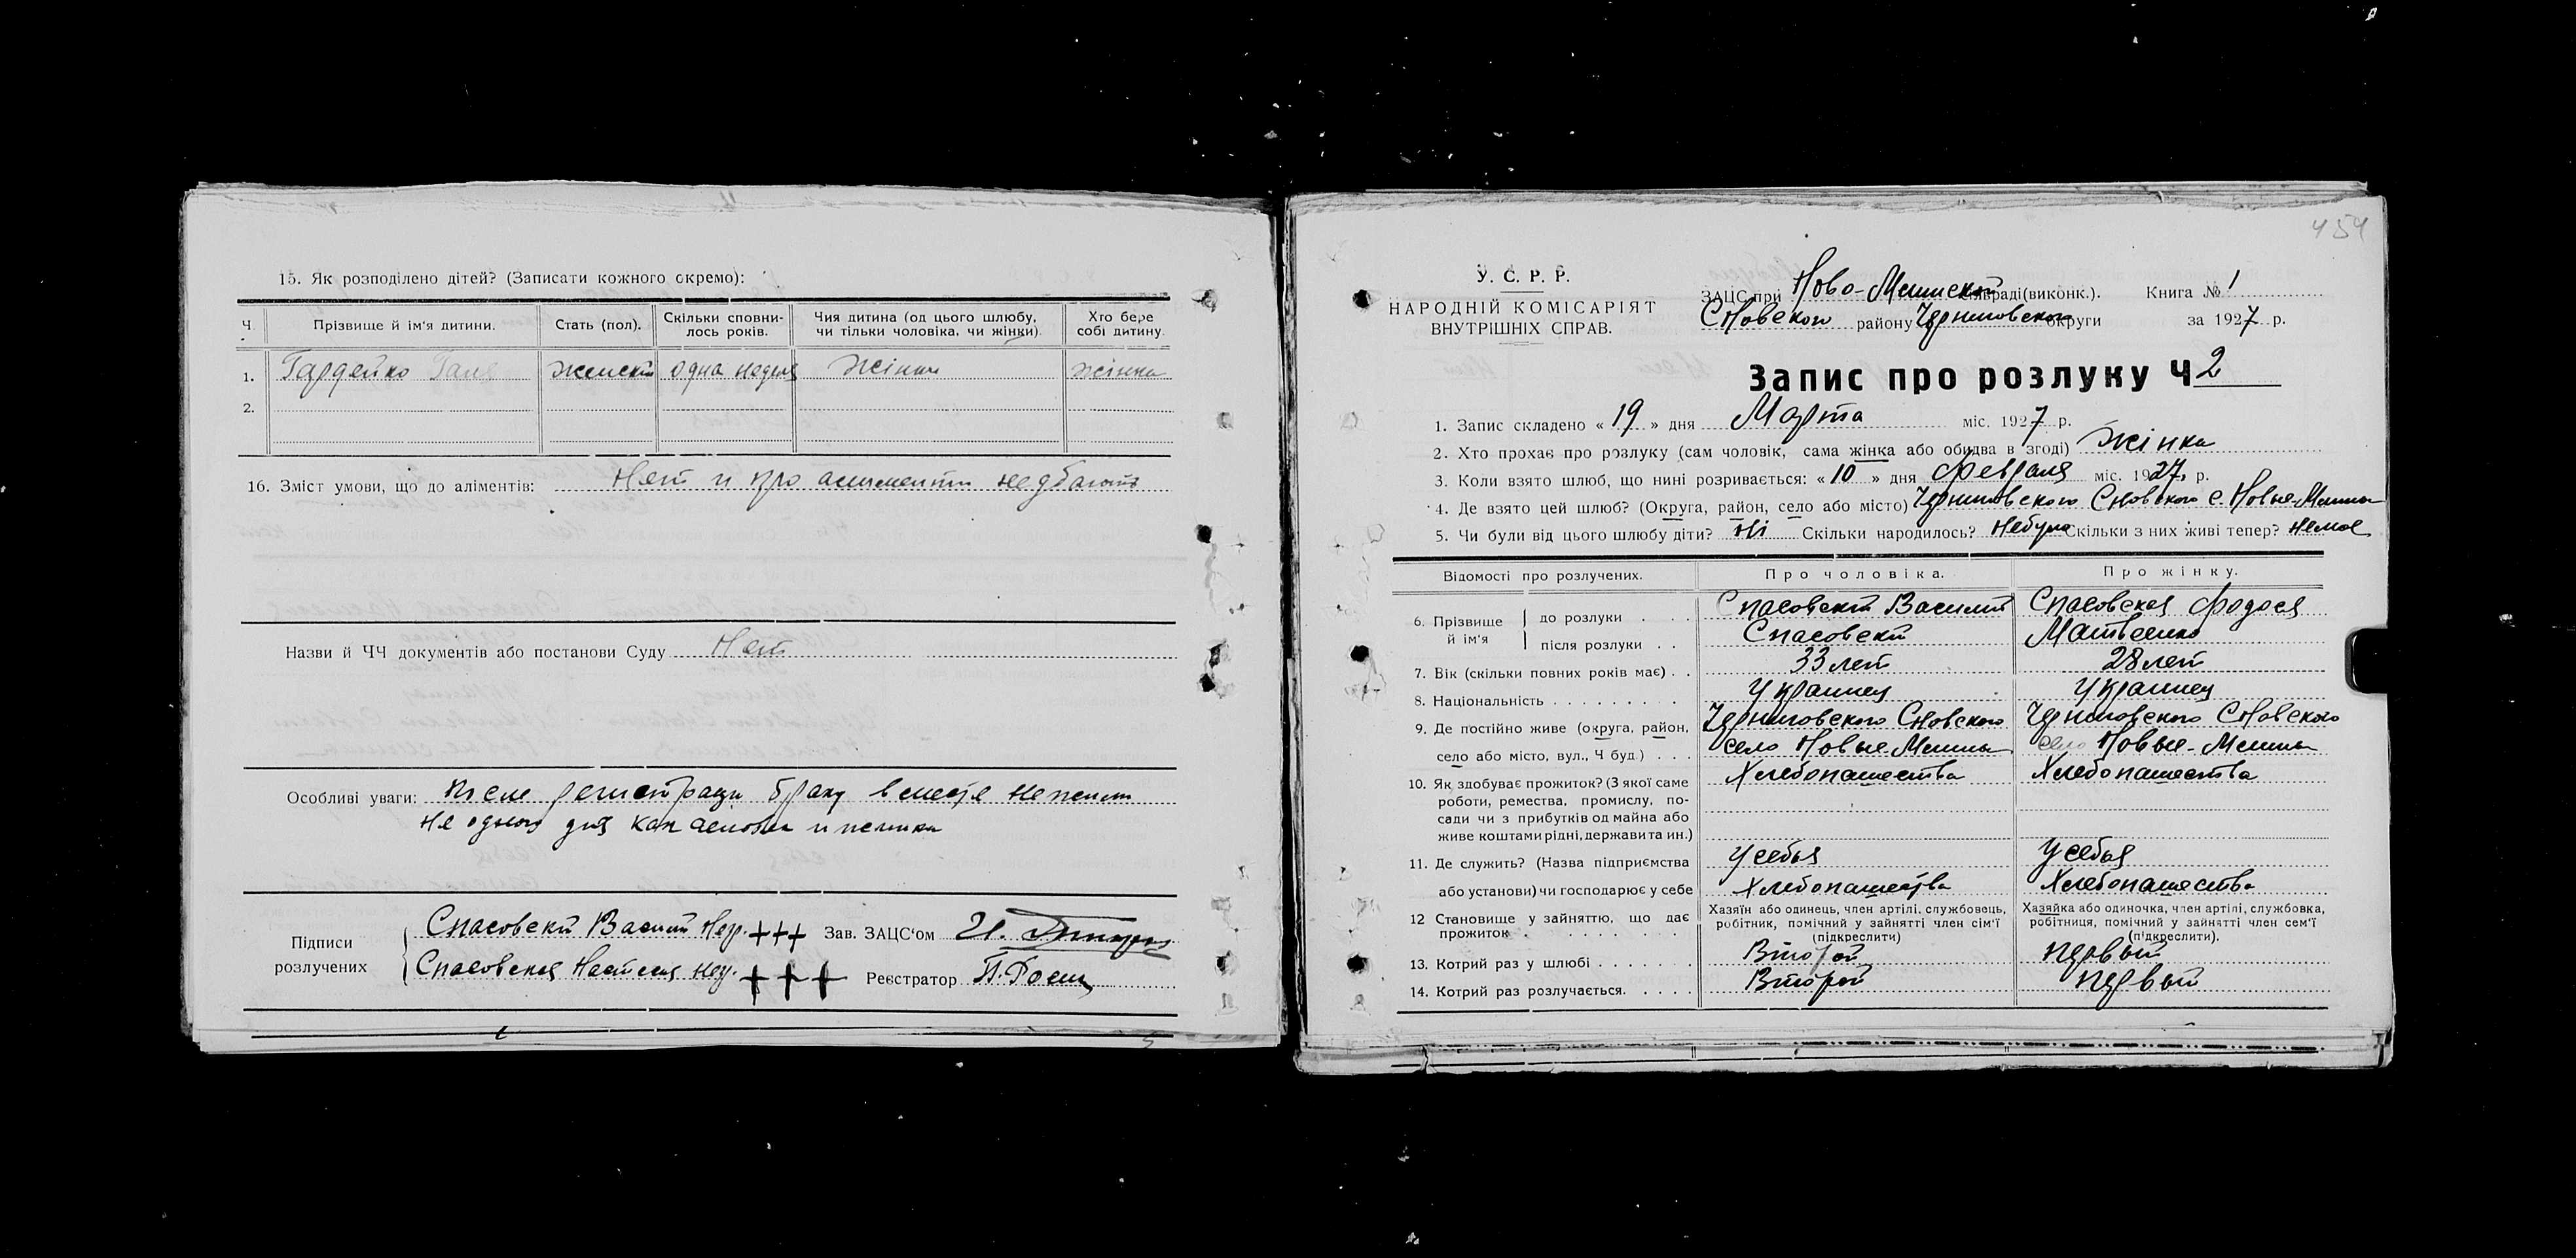 15. Як розподілено дітей? (Записати кожного окремо):
Ч. Прізвище й ім'я дитини. Стать (пол). Скільки сповни-лось років. Чия дитина (од цього шлюбу, чи тільки чоловіка, чи жінки) Хто бере собі дитину.
1. Гардейко Галя женский одна неделя жінки жінка
2.
16. Зміст умови, що до аліментів: Нет и про алименти не дбають
Назви й ЧЧ документів або постанови Суду Нет
Особливі уваги: После регистраци браку вместе не жили
не одного дня как человек и женика
Підписи розлучених
Спасовский Василий Негр. +++ Зав. ЗАЦС'ом И.
Спасовская Настасия негр. +++ Реєстратор П. Роец
454
У. С. Р. Р.
НАРОДНІЙ КОМІСАРІЯТ
ВНУТРІШНІХ СПРАВ.
ЗАЦС при Ново-Млинской сільраді (виконк.). Книга № 1
Сновского району Черниговского округи за 1927 р.
Запис про розлуку Ч 2
1. Запис складено « 19 » дня Марта міс. 1927 р.
2. Хто прохає про розлуку (сам чоловік, сама жінка або обидва в згоді) Жінка
3. Коли взято шлюб, що нині розривається: « 10 » дня февраля міс. 1927 р.
4. Де взято цей шлюб? (Округа, район, село або місто) Черниговского Сновского с. Новые-Млины
5. Чи були від цього шлюбу діти? Ні Скільки народилось? Небуло Скільки з них живі тепер? Немає
Відомості про розлучених. Про чоловіка. Про жінку.
6. Прізвище й ім'я до розлуки Спасовский Василий Спасовская Фодося
після розлуки Спасовский Матвеенко
7. Вік (скільки повних років має) 33 лет 28 лет
8. Національність Украинец Украинец
9. Де постійно живе (округа, район, Черниговского Сновского Черниговского Сновского
село або місто, вул., Ч буд.) село Новые Млины село Новые-Млины
10. Як здобуває прожиток? (З якої саме Хлебопашества Хлебопашества
роботи, ремества, промислу, по-
сади чи з прибутків од майна або
живе коштами рідні, держави та ин.)
11. Де служить? (Назва підприємства У себя У себя
або установи) чи господарює у себе Хлебопашества Хлебопашества
12 Становище у зайняттю, що дає прожиток Хазяїн або одинець, член артілі, службовець, робітник, помічний у зайнятті член сім'ї (підкреслити) Хазяйка або одиночка, член артілі, службовка, робітниця, помічний у зайнятті член сем'ї (підкреслити).
13. Котрий раз у шлюбі Второй первый
14. Котрий раз розлучається. Второй первый